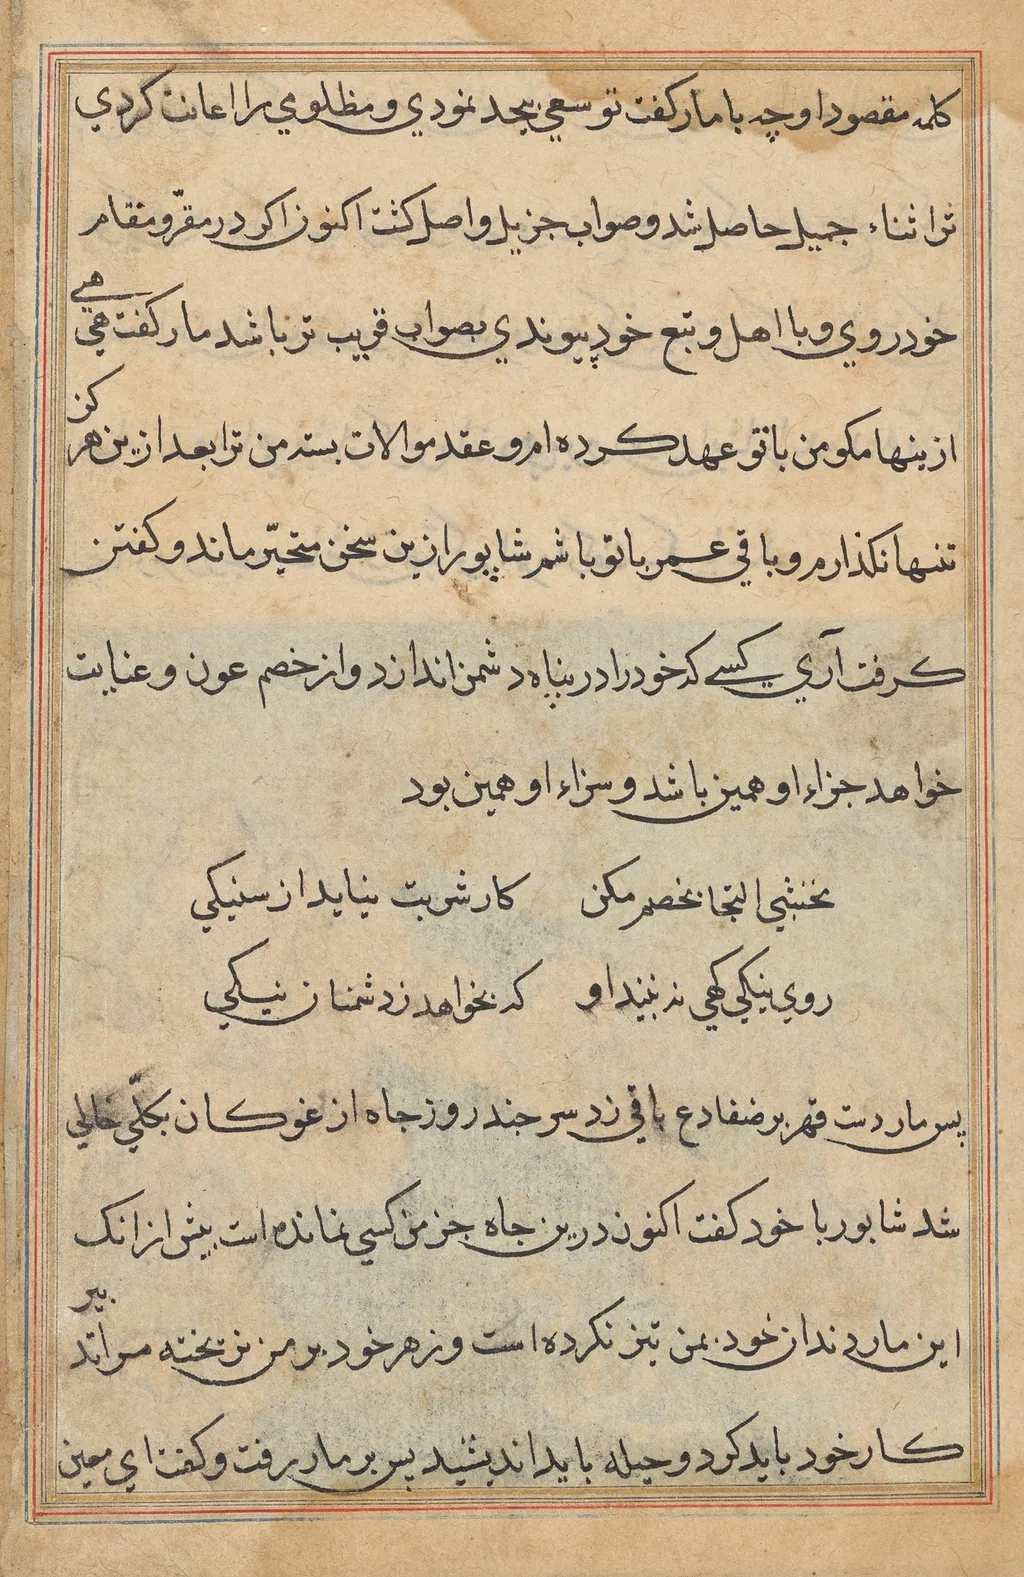 کلمه مقصود او چه با مار کفت تو سعی بیحد نمودي و مظلومي را اعانت کردي
ترا ثناء جمیل حاصل شد و صواب جزیل واصل کشت اکنون اکر در مقرّ و مقام
خود روي و با اهل و تبع خود پیوندي بصواب قریب تر باشد مار کفت هی هی
ازینها مکو من با تو عهد کرده ام و عقد موالات بسته من ترا بعد ازین هر کز
تنها نکذارم و باقي عمر با تو باشم شاپور ازین سخن متحیّر ماند و کفتن
کرفت آري کسے که خود را در پناه دشمن اندازد و از خصم عون و عنایت
خواهد جزاء او همین باشد و سزاء او همین بود
نخشبي التجا بخصم مکن کار شربت نیاید از سنیکي
روي نیکي کهي نه بیند او که بخواهد ز دشمنان نیکي
پس مار دست قهر بر ضفادع باقي زد سر چند روز چاه از غوکان بکلّي خالي
شد شاپور با خود کفت اکنون درین چاه جز من کسي نمانده است پیش از انک
این مار دندان خود بمن تیز نکرده است و زهر خود بر من نریخته مرا تدبیر
کار خود باید کرد و حیله باید اندیشید پس بر مار رفت و کفت اي معین